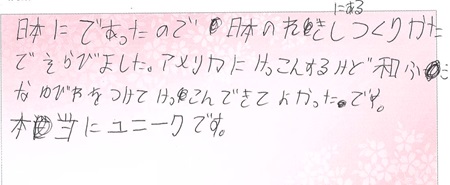 にある
日本にであったので日本のれきしつくりかた
でえらびました。アメリカにけっこんするけど"和ふう
なゆびわをつけてけっこんできてよかったです。
本当にユニークです。